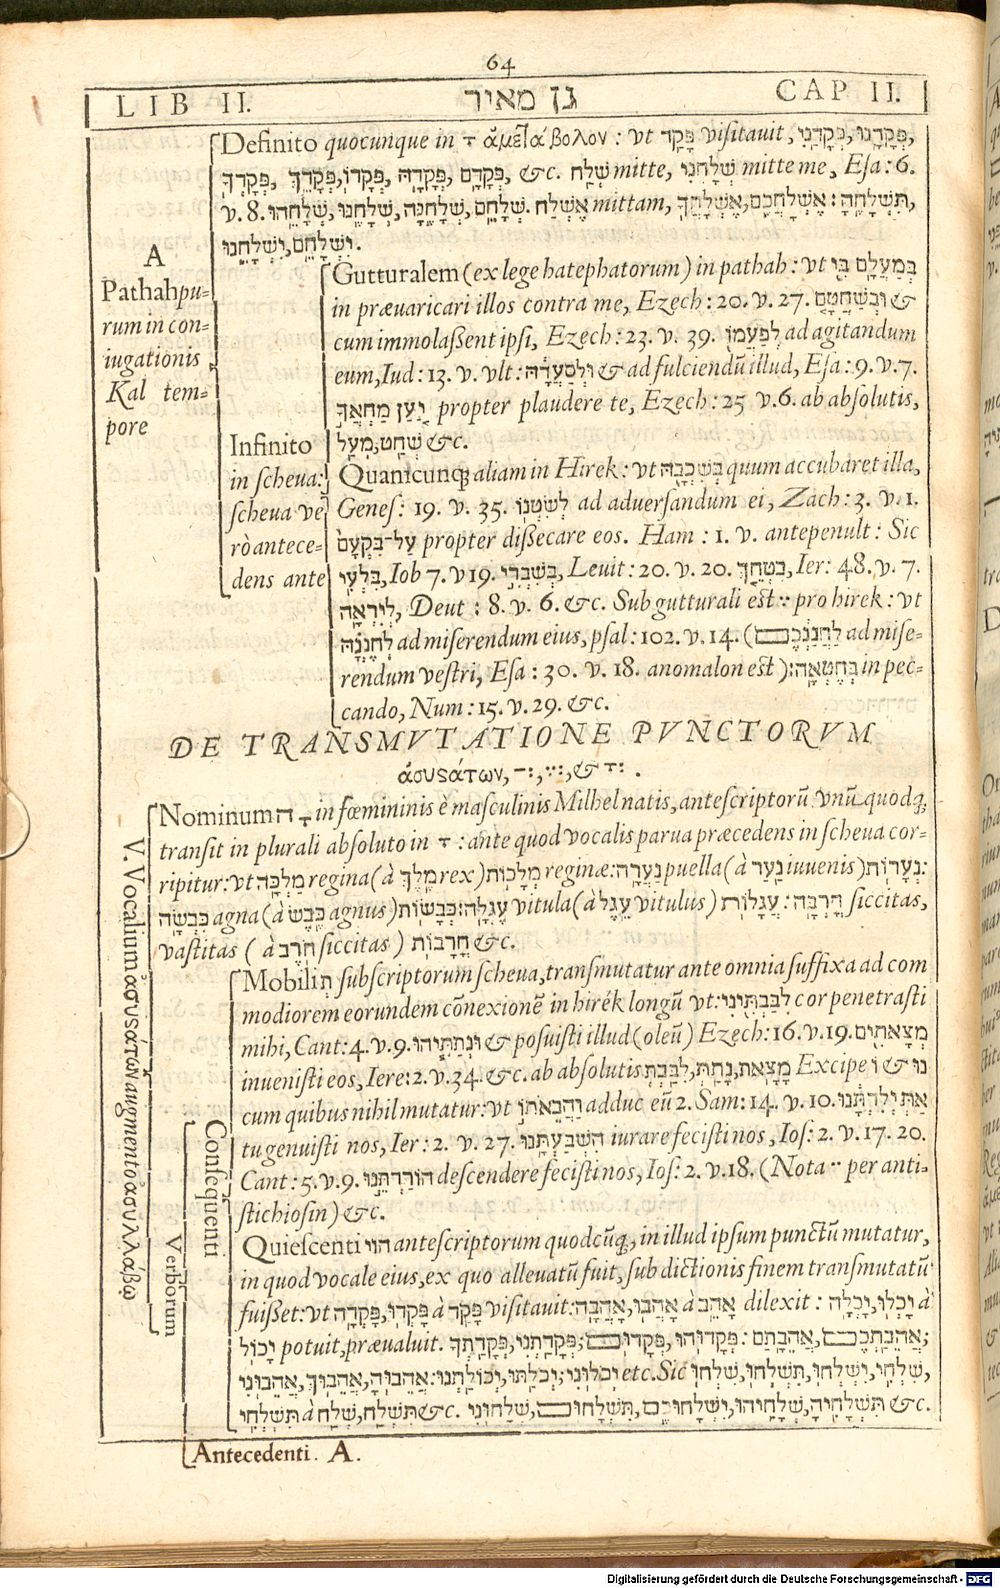 64
LIB II. גן מאיר CAP II.
Definito quocunque in ָ ἀμεταβολον : vt פָּקַד visitauit, פְּקָדַנִי, פְּקָדָנוּ,
פְּקָדְךָ, פְּקָדֵךְ, פְּקָדוֹ, פְּקָדָהּ, פְּקָדָם, &c. שְׁלַח mitte, שְׁלָחֵנִי mitte me, Esa: 6.
v. 8. אֶשְׁלַח mittam, אֶשְׁלָחֲךָ, אֶשְׁלָחֲכֶם: תִּשְׁלָחֶהָ,
יִשְׁלָחֵם, יִשְׁלָחֵנוּ.
A
Pathah pu-
rum in con-
iugationis
Kal tem-
pore
Gutturalem (ex lege hatephatorum) in pathah: vt בְּמַעֲלָם בִּי
in præuaricari illos contra me, Ezech: 20. v. 27. וּבְשַׁחֲטָם &
cum immolassent ipsi, Ezech: 23. v. 39. לְפַעֲמוֹ ad agitandum
eum, Iud: 13. v. vlt: וּלְסַעֲדָהּ & ad fulciendũ illud, Esa: 9. v. 7.
יַעַן מַחְאֲךָ propter plaudere te, Ezech: 25 v. 6. ab absolutis,
מְעַל, שְׁחַט &c.
Infinito
in scheua:
scheua ve
rò antece-
dens ante
Quamcunq; aliam in Hirek: vt בְּשִׁכְבָהּ quum accubaret illa,
Genes: 19. v. 35. לְשִׂטְנוֹ ad aduersandum ei, Zach: 3. v. 1.
עַל-בִּקְעָם propter dissecare eos. Ham: 1. v. antepenult: Sic
בִּלְעִי, Iob 7. v 19. בְּשִׁבְרִי, Leuit: 20. v. 20. בִּטְחֵךְ, Ier: 48. v. 7.
לְיִרְאָה, Deut: 8. v. 6. &c. Sub gutturali est ֶ pro hirek: vt
לְחֶנְנָהּ ad miserendum eius, psal: 102. v. 14. (לַחֲנַנְכֶם ad mise-
rendum vestri, Esa: 30. v. 18. anomalon est): בְּחֶטְאָהּ in pec-
cando, Num: 15. v. 29. &c.
DE TRANSMVTATIONE PVNCTORUM
ἀσυστάτων, ֲ, ֱ, & ֳ.
Nominum ה ָ in fœmininis è masculinis Milhel natis, antescriptorũ vnũ quodq;
transit in plurali absoluto in ָ : ante quod vocalis parua præcedens in scheua cor-
ripitur: vt מַלְכָּה regina (à מֶלֶךְ rex) מְלָכוֹת reginæ: נַעֲרָה puella (à נַעַר iuuenis) נְעָרוֹת:
כִּבְשָׂה agna (à כֶּבֶשׂ agnus) כְּבָשׂוֹת: עֶגְלָה vitula (à עֵגֶל vitulus) עֲגָלוֹת: חָרְבָּה siccitas,
vastitas (à חֹרֶב siccitas) חֳרָבוֹת &c.
V. Vocalium ἀσυστάτων augmento ἀσυλλάβῳ
Verborum
Consequenti
Mobili תְּ subscriptorum scheua, transmutatur ante omnia suffixa ad com
modiorem eorundem cõnexionẽ in hirék longũ vt: לִבַּבְתִּינִי cor penetrasti
mihi, Cant: 4. v. 9. וּנְתַתִּיהוּ & posuisti illud (oleũ) Ezech: 16. v. 19. מְצָאתִים
inuenisti eos, Iere: 2. v. 34. &c. ab absolutis לִבַּבְתְּ, נָתַתְּ, מָצָאת Excipe וֹ & נוּ
cum quibus nihil mutatur: vt וַהֲבֵאתוֹ adduc eũ 2. Sam: 14. v. 10. אַתְּ יְלִדְתָּנוּ
tu genuisti nos, Ier: 2. v. 27. הִשְׁבַּעְתָּנוּ iurare fecisti nos, Ios: 2. v. 17. 20.
Cant: 5. v. 9. הוֹרַדְתֵּנוּ descendere fecisti nos, Ios: 2. v. 18. (Nota ֵ per anti-
stichiosin) &c.
Quiescenti הוי antescriptorum quodcũq;, in illud ipsum punctũ mutatur,
in quod vocale eius, ex quo alleuatũ fuit, sub dictionis finem transmutatũ
fuisset: vt פָּקְדָה, פָּקְדוּ à פָּקַד visitauit: אָהֲבָה, אָהֲבוּ à אָהֵב dilexit: יָכְלָה, יָכְלוּ à
יָכוֹל potuit, præualuit. פְּקָדַתְךָ, פְּקָדַתְנִי; פְּקָדוּם, פְּקָדוּהוּ: אֲהֵבָתַם, אֲהֵבַתְכֶם;
אֲהֵבוּנִי, אֲהֵבוּךָ, אֲהֵבוּהָ: יְכָלַתְנוּ, יְכָלַתּוּ; יְכָלוּנִי etc. Sic שִׁלְחוּ, תִּשְׁלְחוּ, יִשְׁלְחוּ, שִׁלְחִי,
תִּשְׁלְחִי à שְׁלַח, תִּשְׁלַח &c. שְׁלָחוּנִי, תִּשְׁלָחוּם, יִשְׁלָחוּכֶם, שְׁלָחִיהוּ, תִּשְׁלָחִיהָ &c.
Antecedenti. A.
Digitalisierung gefördert durch die Deutsche Forschungsgemeinschaft - DFG